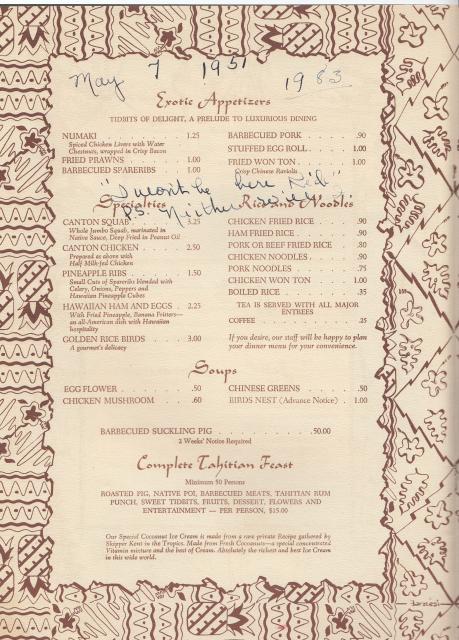 May 7 1951
1983
Exotic Appetizers
TIDBITS OF DELIGHT, A PRELUDE TO LUXURIOUS DINING
NUMAKI . . . . . . . . 1.25
Spiced Chicken Livers with Water
Chestnuts, wrapped in Crisp Bacon
FRIED PRAWNS . . . . . 1.00
BARBECUED SPARERIBS . . 1.00
BARBECUED PORK . . . . . .90
STUFFED EGG ROLL . . . . 1.00
FRIED WON TON . . . . . 1.00
Crisp Chinese Raviolis
"I won't be here Kid"
P.S. Neither
Specialties
CANTON SQUAB . . . . . 3.25
Whole Jumbo Squab, marinated in
Native Sauce, Deep Fried in Peanut Oil
CANTON CHICKEN . . . . 2.50
Prepared as above with
Half Milk-fed Chicken
PINEAPPLE RIBS . . . . . 1.50
Small Cuts of Spareribs blended with
Celery, Onions, Peppers and
Hawaiian Pineapple Cubes
HAWAIIAN HAM AND EGGS . 2.25
With Fried Pineapple, Banana Fritters—
an all-American dish with Hawaiian
hospitality
GOLDEN RICE BIRDS . . . 3.00
A gourmet's delicacy
Rice and Noodles
CHICKEN FRIED RICE . . . . .90
HAM FRIED RICE . . . . . .90
PORK OR BEEF FRIED RICE .80
CHICKEN NOODLES . . . . .90
PORK NOODLES . . . . . . .75
CHICKEN WON TON . . . . 1.00
BOILED RICE . . . . . . . .35
TEA IS SERVED WITH ALL MAJOR
ENTREES
COFFEE . . . . . . . . . .25
If you desire, our staff will be happy to plan
your dinner menu for your convenience.
Soups
EGG FLOWER . . . . . . .50
CHICKEN MUSHROOM . . . .60
CHINESE GREENS . . . . . .50
BIRDS NEST (Advance Notice) . 1.00
BARBECUED SUCKLING PIG . . . . . . . . . 50.00
2 Weeks' Notice Required
Complete Tahitian Feast
Minimum 50 Persons
ROASTED PIG, NATIVE POI, BARBECUED MEATS, TAHITIAN RUM
PUNCH, SWEET TIDBITS, FRUITS, DESSERT, FLOWERS AND
ENTERTAINMENT — PER PERSON, $15.00
Our Special Cocoanut Ice Cream is made from a rare private Recipe gathered by
Skipper Kent in the Tropics. Made from Fresh Cocoanuts—a special concentrated
Vitamin mixture and the best of Cream. Absolutely the richest and best Ice Cream
in this wide world.